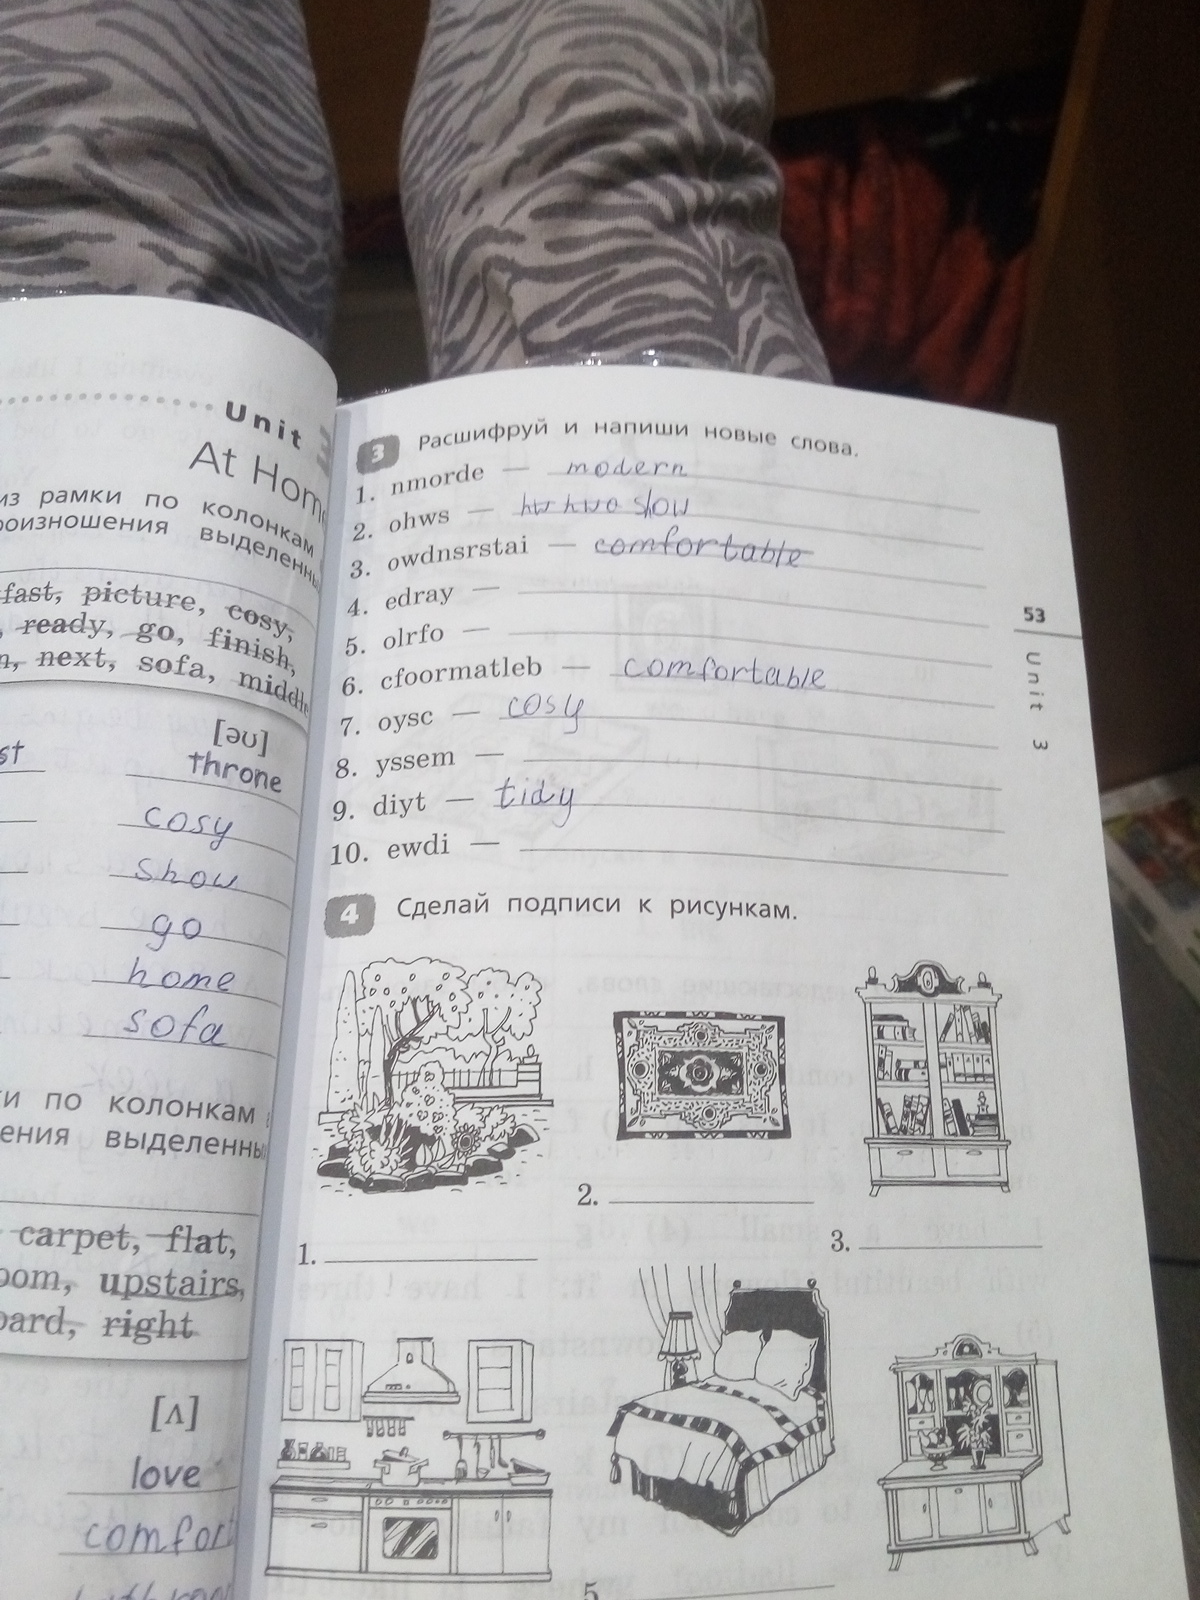 Unit 3
At Home
из рамки по колонкам
произношения выделенны
fast, picture, cosy,
ready, go, finish,
next, sofa, middle
[əʊ]
throne
cosy
show
go
home
sofa
ки по колонкам в
ения выделенны
carpet, flat,
oom, upstairs,
oard, right
[ʌ]
love
comfort
3 Расшифруй и напиши новые слова.
1. nmorde — modern
2. ohws — show
3. owdnsrstai — comfortable
4. edray —
5. olrfo —
6. cfoormatleb — comfortable
7. oysc — cosy
8. yssem —
9. diyt — tidy
10. ewdi —
53
Unit 3
4 Сделай подписи к рисункам.
1.
2.
3.
5